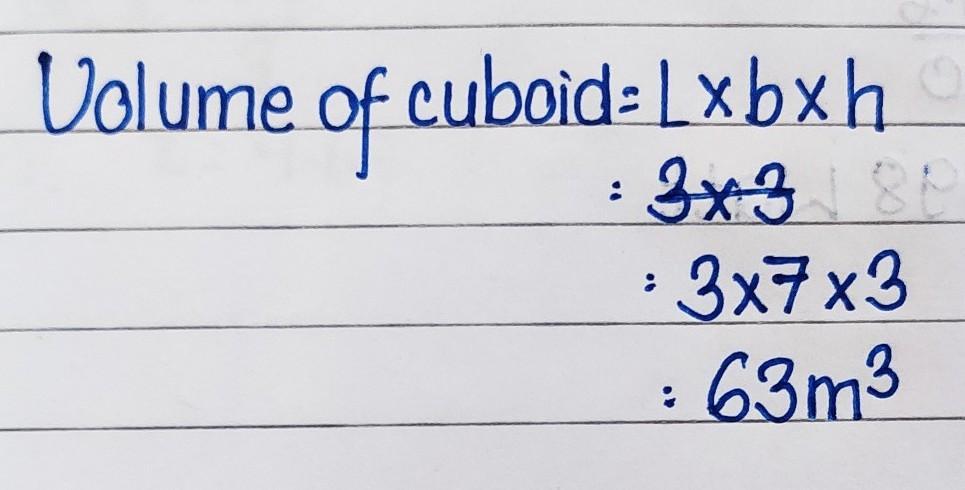 Volume of cuboid = L x b x h
: 3 x 3
: 3 x 7 x 3
: 63 m³